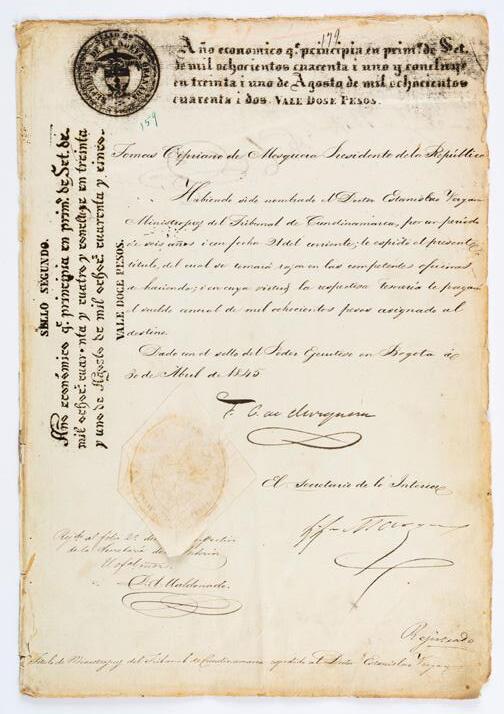 SELLO 2º
REPUBLICA DE LA NUEVA GRANADA
179
Año economico q.e principia en prim.o de Set.
de mil ochocientos cuarenta i uno y concluye
en treinta i uno de Agosto de mil ochocientos
cuarenta i dos. VALE DOSE PESOS.
159
SELLO SEGUNDO.
Año económico q.e principia en prim.o de Set. de
mil ochoc.s cuarenta y cuatro y concluye en treinta
y uno de Agosto de mil ochoc.s cuarenta y cinco.
VALE DOCE PESOS.
Tomas Cipriano de Mosquera Presidente de la República
Habiendo sido nombrado el Doctor Estanislao Vergara
Ministro juez del Tribunal de Cundinamarca, por un periodo
de seis años i con fecha 21 del corriente; le espido el presente
titulo, del cual se tomará razon en las competentes oficinas
de hacienda; i en cuya virtud la respectiva tesoreria le pagará
el sueldo anual de mil ochocientos pesos asignado al
destino.
Dado con el sello del Poder Ejecutivo en Bogotá á
30 de Abril de 1845
T. C. de Mosquera
El Secretario de lo Interior
Rej.do al folio 22 de
de la Secretaria de
Maldonado
Rejistrado
Titulo de Ministro juez del Tribunal de Cundinamarca espedido al Doctor Estanislao Vergara